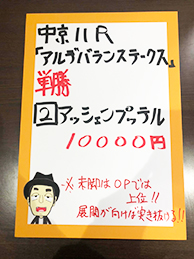 中京11R
『アルデバランステークス』
単勝
2アッシェンプッテル
10000円
※末脚はOPでは
上位!!
展開が向けば突き抜ける!!